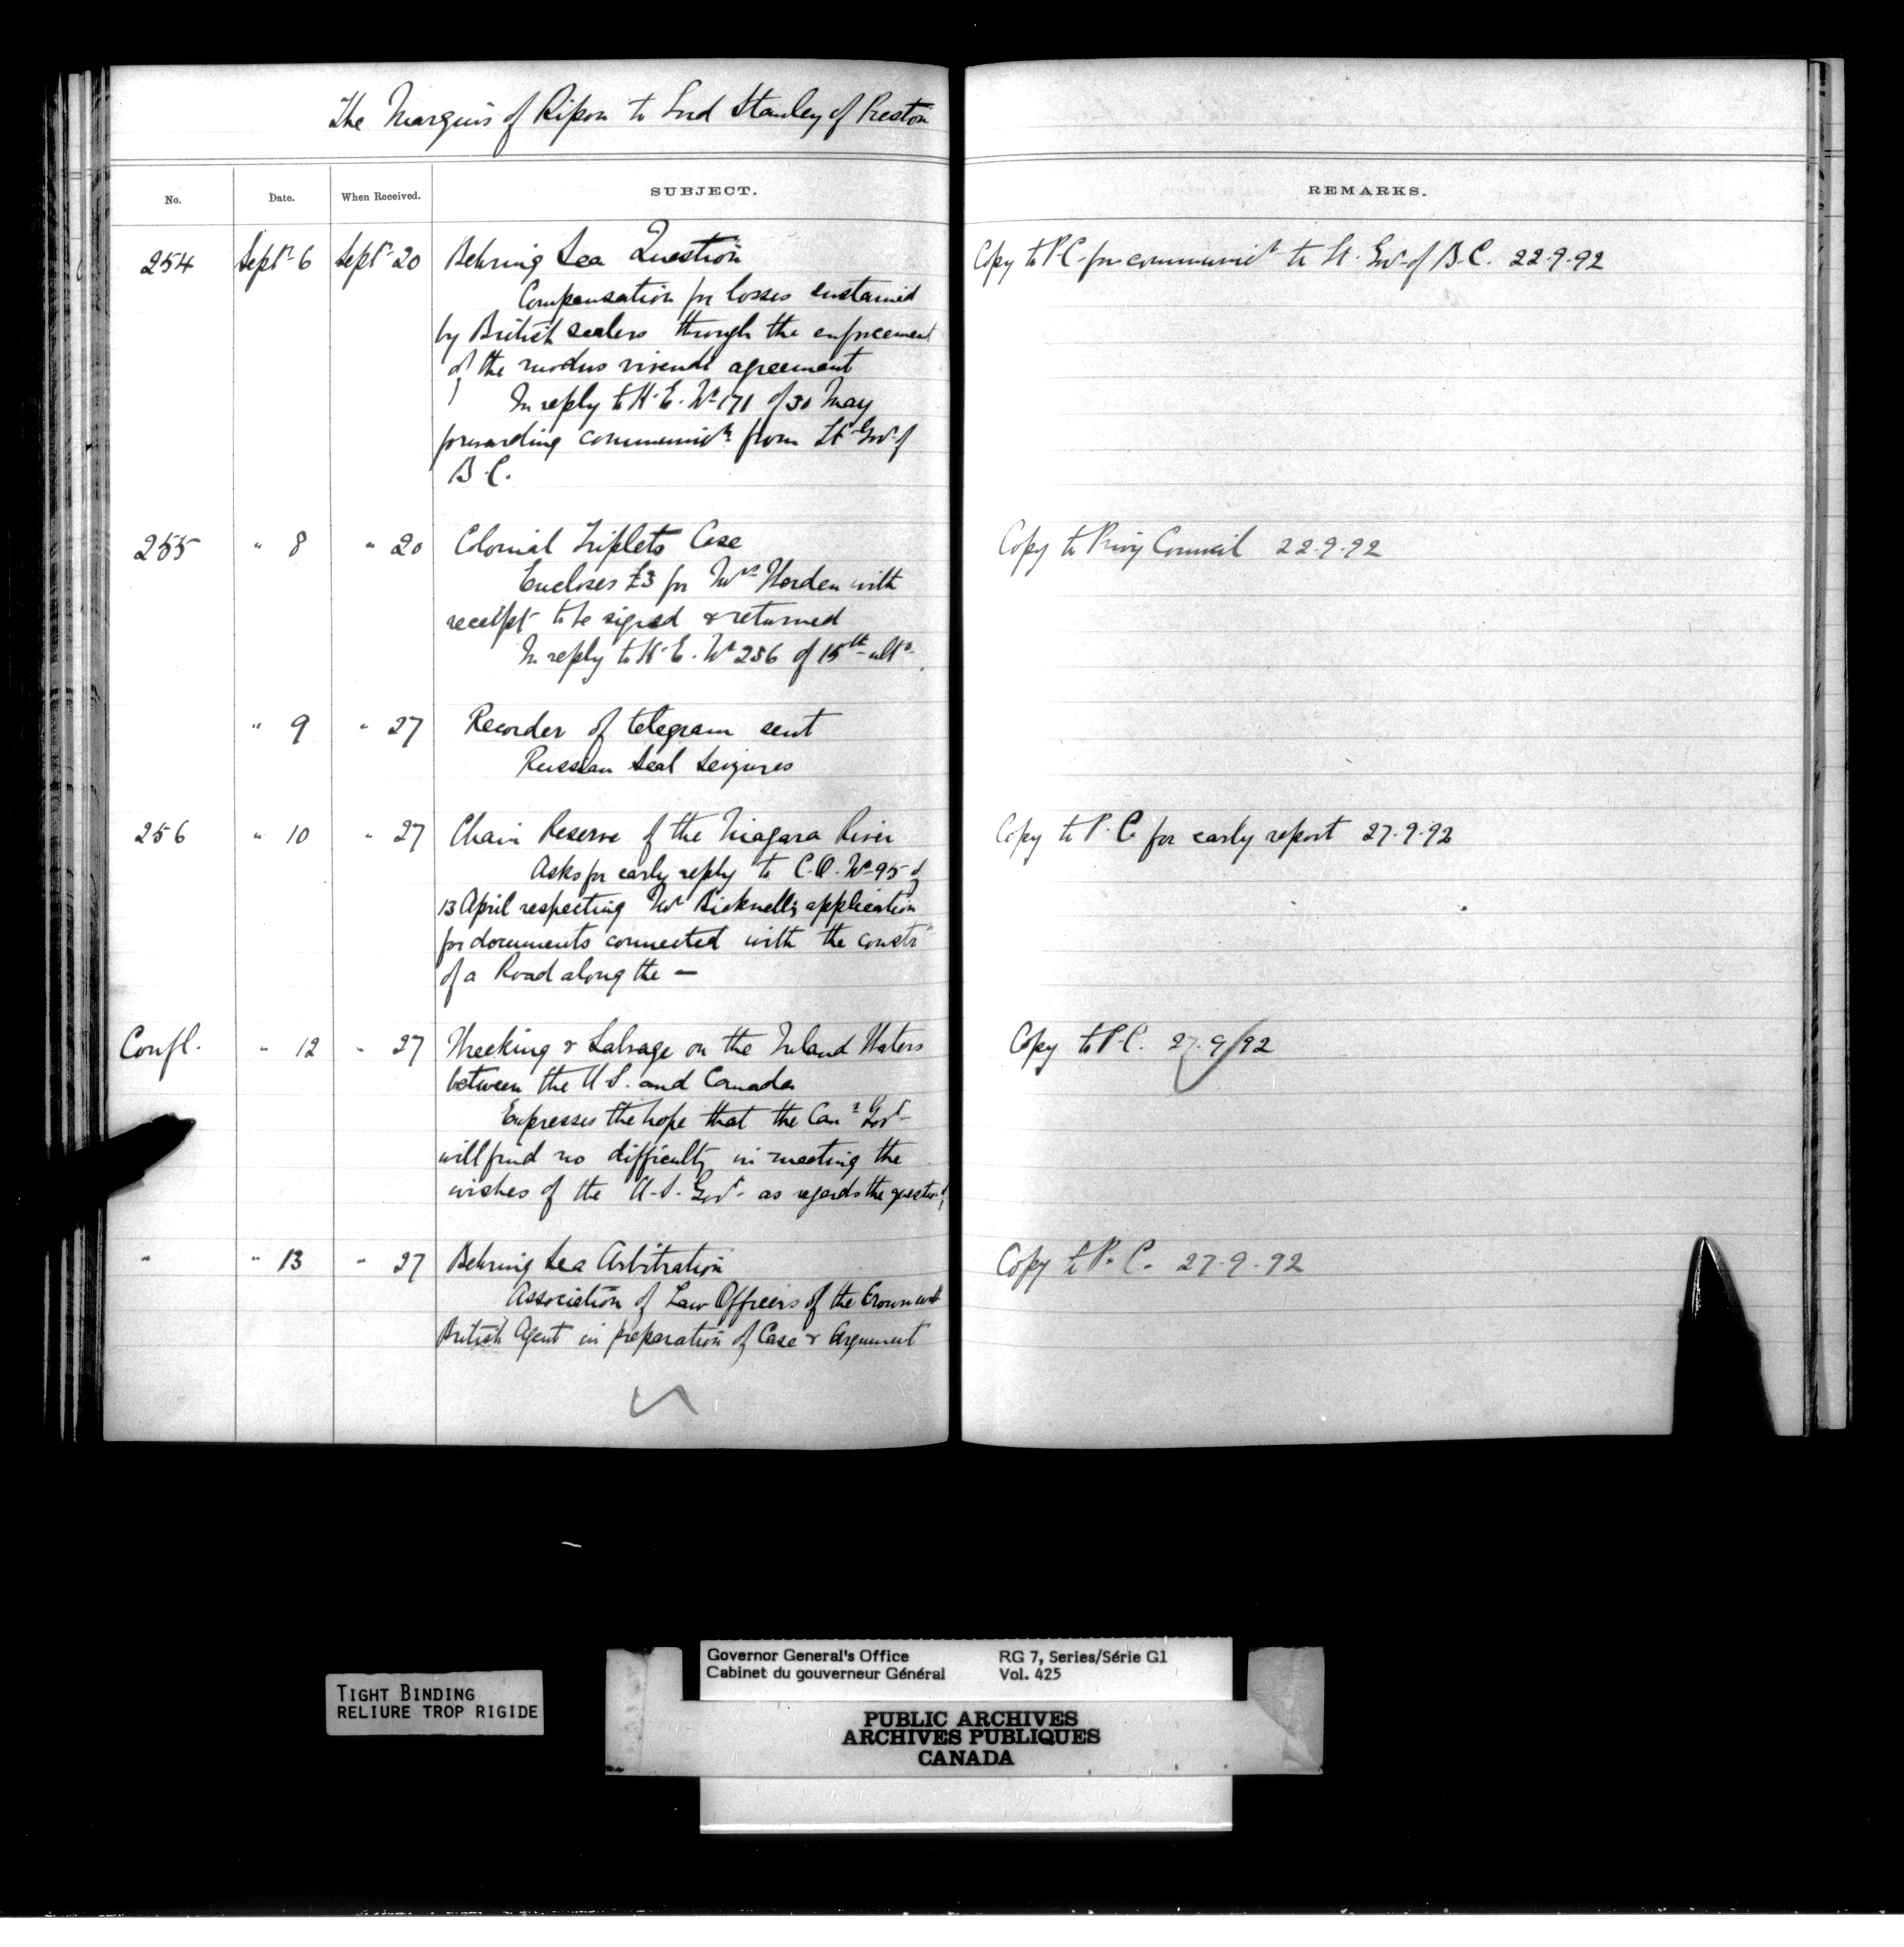 The Marquis of Ripon to Lord Stanley of Preston
No. Date. When Received. SUBJECT. REMARKS.
254 Septr 6 Septr 20 Behring Sea Question Copy to P.C. for communicn to Lt. Govr of B.C. 22.9.92
Compensation for losses sustained
by British sealers through the enforcement
of the modus vivendi agreement
In reply to H.E. No 171 of 30 May
forwarding communicn from Lt Govr of
B.C.
255 " 8 " 20 Colonial Triplets Case Copy to Privy Council 22.9.92
Encloses £3 for Mrs Horden with
receipt to be signed & returned
In reply to H.E. No 256 of 15th ulto.
" 9 " 27 Recorder of telegram sent
Russian Seal Seizures
256 " 10 " 27 Chain Reserve of the Niagara River Copy to P.C. for early report 27.9.92
Asks for early reply to C.O. No 95 of
13 April respecting Mr Bicknell's application
for documents connected with the constrn
of a Road along the —
Confl. " 12 " 27 Wrecking & Salvage on the Inland Waters Copy to P.C. 27.9.92
between the U.S. and Canada
Expresses the hope that the Cann Govt
will find no difficulty in meeting the
wishes of the U.S. Govt as regards the question
" " 13 " 27 Behring Sea Arbitration Copy to P.C. 27.9.92
Association of Law Officers of the Crown with
British Agent in preparation of Case & Argument
Governor General's Office RG 7, Series/Série G1
Cabinet du gouverneur Général Vol. 425
TIGHT BINDING
RELIURE TROP RIGIDE
PUBLIC ARCHIVES
ARCHIVES PUBLIQUES
CANADA